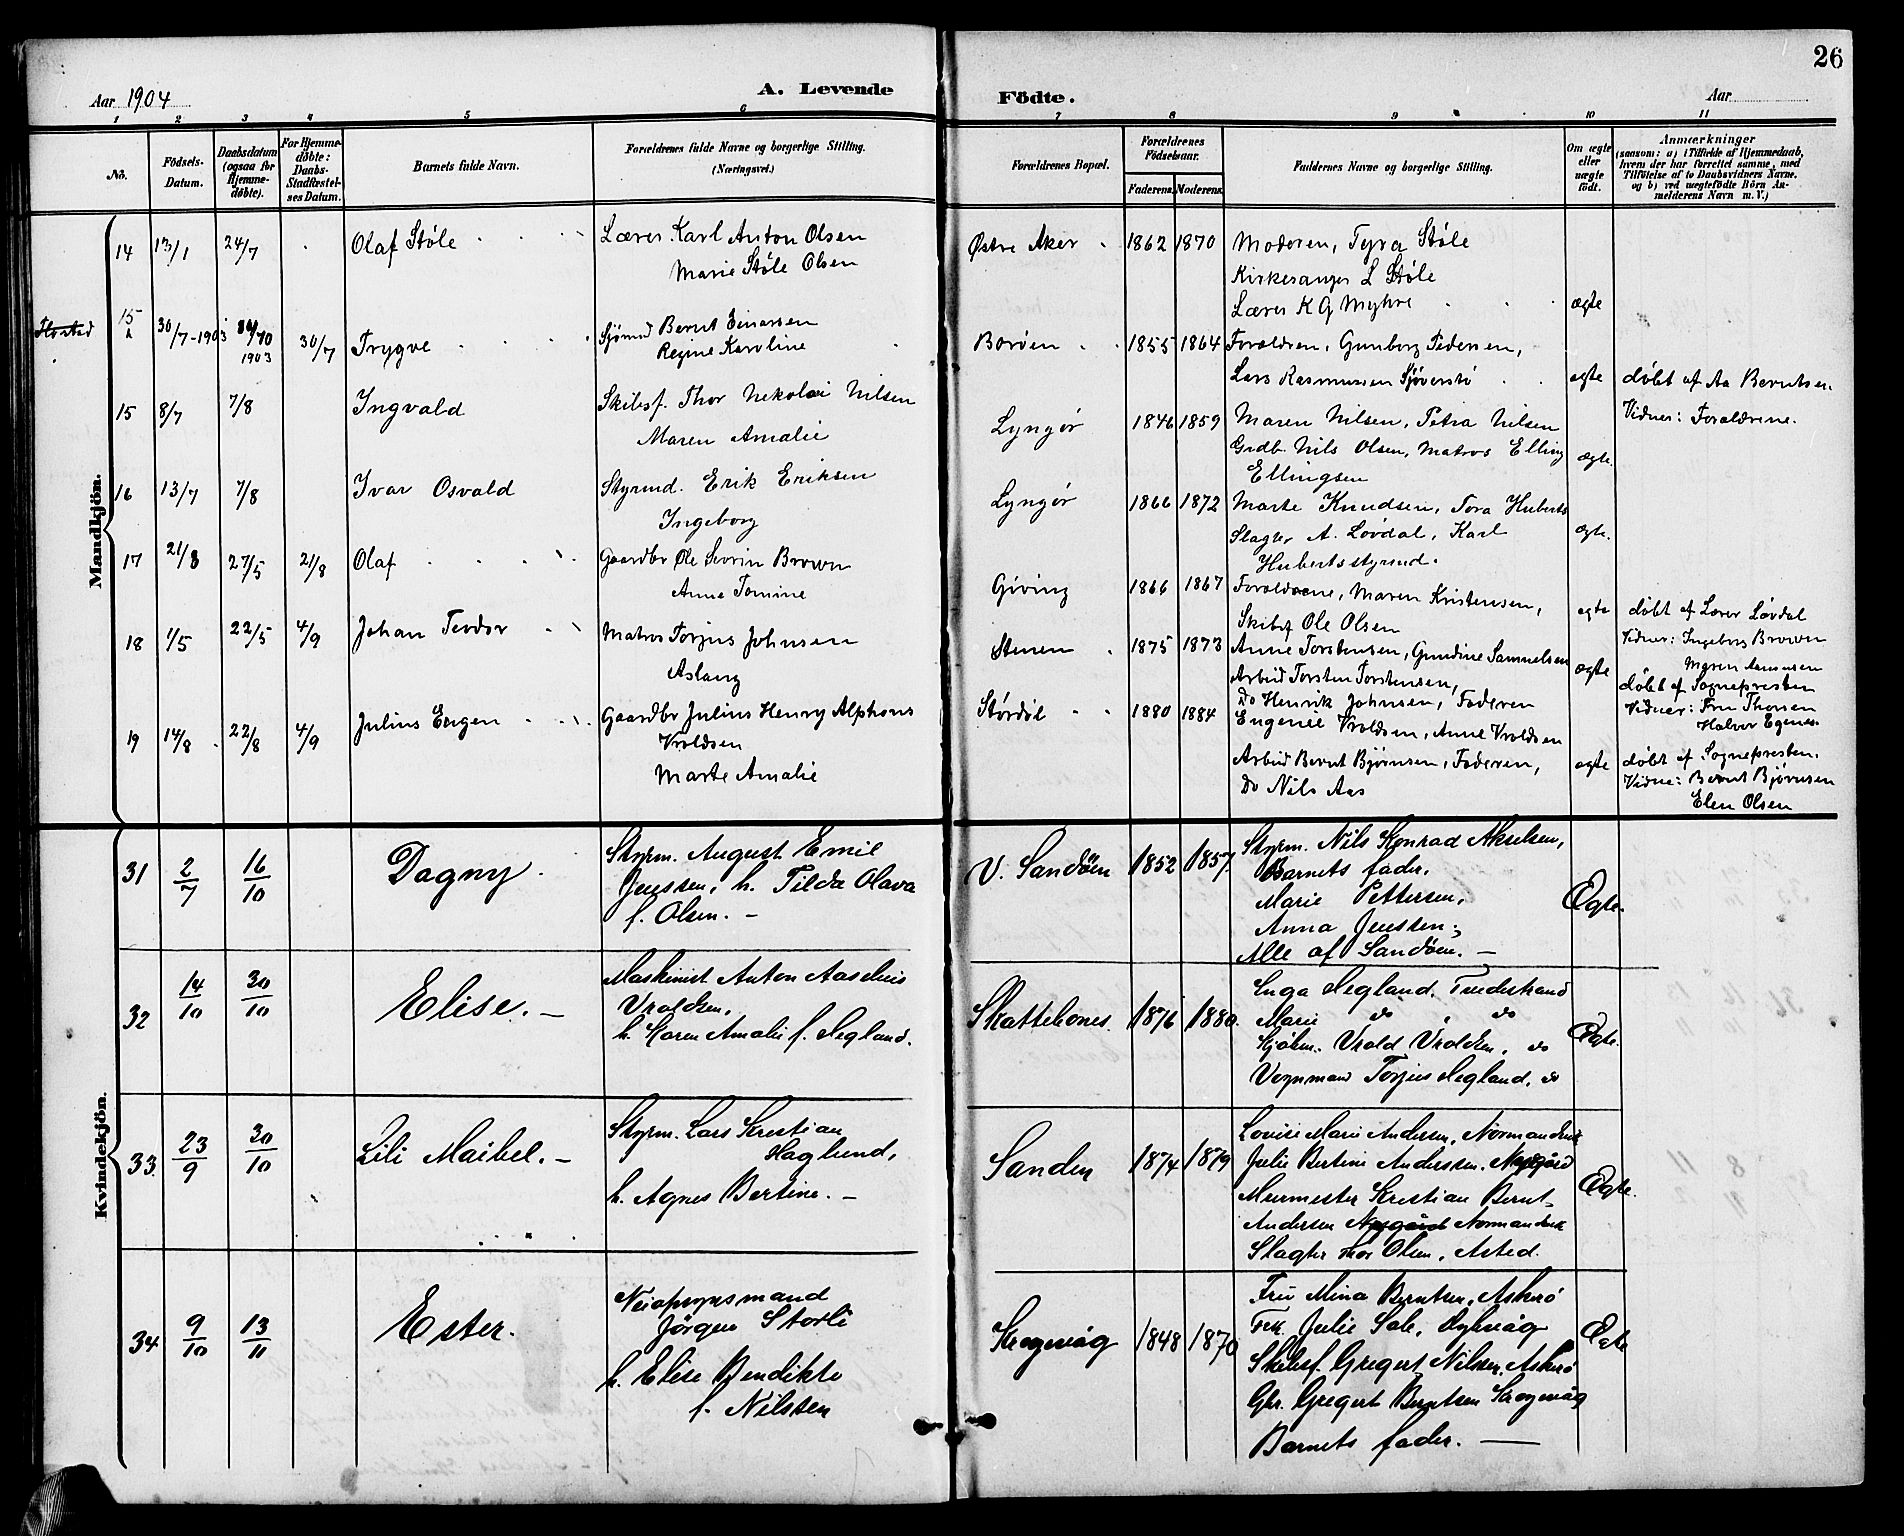 26
Aar 1904
A. Levende
Födte.
Aar
1 2 3 4 5 6 7 8 9 10 11
No.
Födsels-Datum.
Daabsdatum (ogsaa for Hjemme-döbte).
For Hjemme-döbte: Daabs-Stadfæstel-ses Datum.
Barnets fulde Navn.
Forældrenes fulde Navne og borgerlige Stilling.
(Næringsvei.)
Forældrenes Bopæl.
Forældrenes Födselsaar.
Faderens. Moderens.
Faddernes Navne og borgerlige Stilling.
Om ægte eller uægte født.
Anmærkninger
(saasom: a) i Tilfælde af Hjemmedaab,
hvem der har forrettet samme, med
Tilföielse af to Daabsvidners Navne,
og b) ved uægtefödte Börn An-
melderens Navn m. V.)
Mandkjön.
14 13/1 24/7 Olaf Støle Lærer Karl Anton Olsen Østre Aker 1862 1870 Moderen, Tyra Støle
Marie Støle Olsen Kirkesanger L Støle
Lærer K G Myhre ægte
15 a 30/7-1903 1903 30/7 Trygve Sjømd Bernt Einarsen Borøen 1855 1864 Forældren, Gunborg Pedersen,
Regine Karoline Lars Rasmussen Sjøverstø ægte døbt af Aa Berntsen.
Vidner: Forældrene.
15 8/7 7/8 Ingvald Skibsf. Thor Nekolai Nilsen Lyngør 1846 1859 Maren Nilsen, Petra Nilsen
Maren Amalie Grdb. Nils Olsen, Matros Elling ægte.
Ellingsen
16 13/7 7/8 Ivar Osvald Styrmd. Erik Eriksen Lyngør 1866 1872 Marte Knudsen, Tora Huberts
Ingeborg Slagter A. Løvdal, Karl ægte.
Huberts styrmd.
17 21/8 27/5 21/8 Olaf Gaardbr Ole Severin Brown Giving 1866 1867 Forældrene, Maren Kristensen,
Anne Tomine Skibsf Ole Olsen ægte døbt af Lærer Løvdal
Vidner: Ingeborg Brown
Maren Aanunsen
18 1/5 22/5 4/9 Johan Teodor Matros Torjus Johnsen Stenen 1875 1873 Anne Torstensen, Gundine Samuelsen
Aslaug Arbeid Torsten Torstensen, ægte døbt af Sognepresten
Do Henrik Johnsen, Faderen Vidner: Fru Thorsen
Halvor Egenes
19 14/8 22/8 4/9 Julius Eugen Gaardbr Julius Henry Alphons Størdøl 1880 1884 Eugenie Vroldsen, Anne Vroldsen
Vroldsen
Marte Amalie Arbeid Bernt Bjørnsen, Faderen, ægte døbt af Sognepresten.
Do Nils Aas Vidne: Bernt Bjørnsen
Elen Olsen
Kvindekjön.
31 2/7 16/10 Dagny. Styrm. August Emil V. Sandøen 1852 1857. Styrm. Nils Konrad Akselsen,
Jenssen, h. Tilda Olava Barnets fader,
f. Olsen. – Marie Pettersen, Ægte.
Anna Jenssen;
Alle af Sandøen. –
32 14/10 30/10 Elise. – Maskinist Anton Aaselius Skattebones. 1876 1880. Inga Hegland, Tvedestrand
Vroldsen, Marie do, do
h. Karen Amalie f. Hegland. Kjøbm. Vrold Vroldsen, do Ægte.
Vognmand Torjus Hegland, do
33 23/9 30/10 Lili Maibel. – Styrm. Lars Kristian Sanden 1874 1879 Lovise Marie Andersen, Normandvik
Haglund, Julie Bertine Anderssen,
h. Agnes Bertine. – Murmester Kristian Bernt Ægte.
Andersen Normandvik
Slagter Thor Olsen, Asted.
34 9/10 13/11 Ester. Jörgen Storli Krogvåg 1848 1870 Fru Mina Berntsen, Askerö
h. Elise Bendikte Frk. Julie Sole, Dybvåg Ægte
f. Nilssen Skibsf. Gregert Nilsen, Askerö
Gbr. Gregert Berntsen Krogvåg
Barnets fader. –